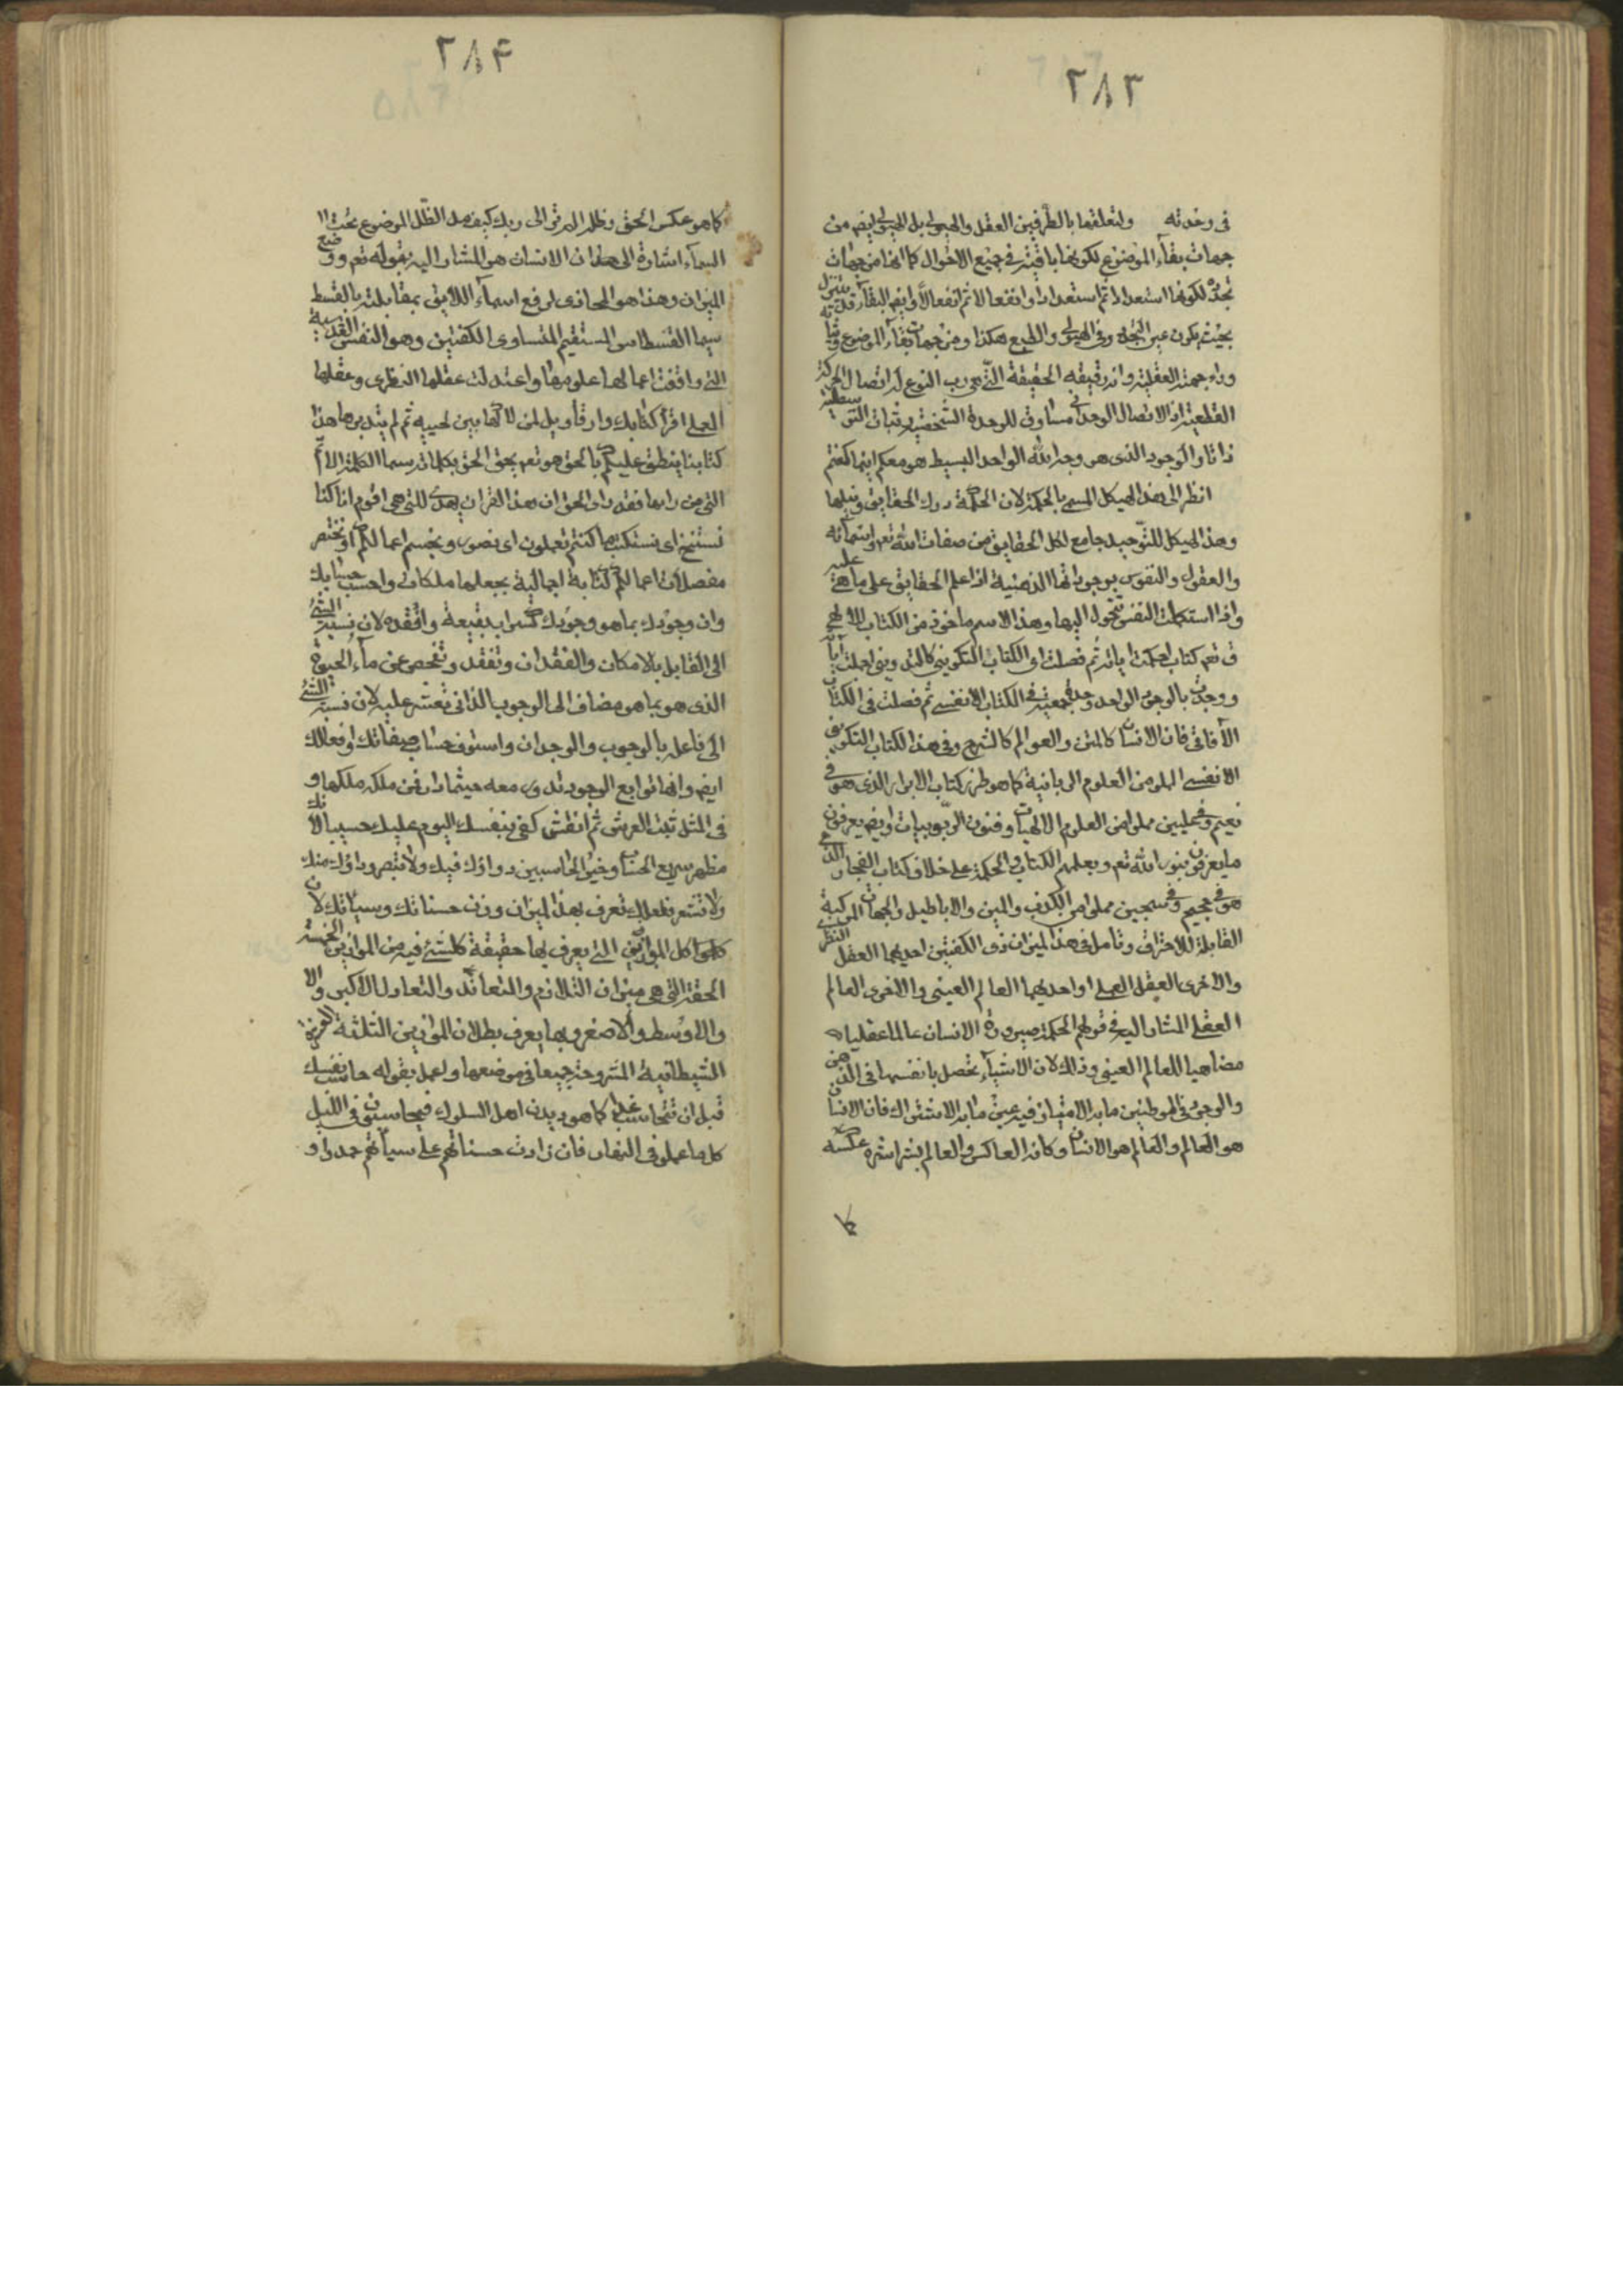 ٢٨٣
فى وحدته ولتعلقها بالطرفين العقل والهيولى بل الهيولى ايضا من
جهات بقاء الموضوع لكونها باقية فى جميع الاحوال كما انها من جهات
تجدده لكونها استعدادا ثم استعدادا وانفعالا ثم انفعالا وايضا البقاء قد يتنزل
بحيث يكون عين التجدد وفى الهيولى والطبع هكذا ومن جهات بقاء الموضوع
وراء جهته العقلية وانه رقيقه الحقيقة التى هى رب النوع له اتصال الحركة
القطعية اذ الاتصال الوحدانى مساوق للوحدة الشخصية وثبات التوسطية
ذاتا والوجود الذى هو وجه الله الواحد البسيط هو معكم اينما كنتم
انظر الى هذا الهيكل المسمى بالحكمة لان الحكمة درك الحقايق ونيلها
وهذا الهيكل للتوحيد جامع لكل الحقايق من صفات الله تعم واسمائه
والعقول والنفوس بوجوداتها الذهنية اذا علم الحقايق على ما هى عليه
واذا استكملت النفس تتحول اليها وهذا الاسم ماخوذ من الكتاب الالهى
ق تعم كتاب احكمت اياته ثم فصلت اى الكتاب التكوينى كالتدوينى احكمت اياته
ووجدت بالوجود الواحد وحدة جمعية فى الكتاب الانفسى ثم فصلت فى الكتاب
الآفاقى فان الانسان كالمتن والعوالم كالشرح وفى هذا الكتاب التكوينى
الانفسى المملو من العلوم الربانية كما هو طرز كتاب الابرار الذى هو فى
نعيم وفى عليين مملوا من العلوم الالهيات وفنون الربوبيات وايضا يعرفون
ما يعرفون بنور الله تعم ويعلمهم الكتاب والحكمة على خلاف كتاب الفجار الذى
هو فى جحيم وفى سجين مملوا من الكذب والمين والاباطيل والجهات المركبة
القابلة للاحتراق وتامل فى هذا الميزان ذى الكفتين احديهما العقل النظرى
والاخرى العقل العملى او احديهما العالم العينى والاخرى العالم
العقلى المشار اليه فى قولهم الحكمة صيرورة الانسان عالما عقليا
مضاهيا للعالم العينى وذلك لان الاشياء تحصل بانفسها فى الذهن
والوجود فى الموطنين ما به الامتياز فيه عين ما به الاشتراك فان الانسان
هو العالم والعالم هو الانسان وكانه العاكس والعالم بشراشره عكسه
كما
٢٨۴
كما هو عكس الحق وظله الم تر الى ربك كيف مد الظل الموضوع تحت
السماء اشارة الى هذا ان الانسان هو المشار اليه بقوله تعم ووضع
الميزان وهذا هو المحاذى لرفع اسماء اللايق بمقابلته بالقسط
سيما القسطاس المستقيم المتساوى الكفتين وهو النفس القدسية
التى وافقت اعمالها علومها واعتدلت عقلها النظرى وعقلها
العملى اقرأ كتابك وارقأ ويل لمن لاكها بين لحييه ثم لم يتدبرها هذا
كتابنا ينطق عليكم بالحق هو تعم يحق الحق بكلماته سيما الكلمة الاتم
التى من راها فقد راى الحق ان هذا القران يهدى للتى هى اقوم انا كنا
نستنسخ اى نستكتب ما كنتم تعملون اى نصور ونجسم اعمالكم او نختصر
مفصلات اعمالكم كتابة اجمالية بجعلها ملكات واحسب حسابك
وان وجودك بما هو وجودك كسراب بقيعة وافقده لان نسبة الشئ
الى القابل بالامكان والفقدان وتفقد وتفحص عن ماء الحيوة
الذى هو بما هو مضاف الى الوجوب الذاتى تعثر عليه لان نسبة الشئ
الى فاعله بالوجوب والوجدان واستوف حساب صفاتك وافعالك
ايضا وانها توابع الوجود تدور معه حيثما دار فمن ملكه ملكها و
فى المثل ثبت العرش ثم انقش كفى بنفسك اليوم عليك حسيبا لانك
مظهر سريع الحساب وخير الحاسبين دواؤك فيك ولا تبصر وداؤك منك
ولا تشعر فلعلك تعرف بهذا الميزان وزن حسناتك وسيئاتك لان
كلها كل الموازين التى يعرف بها حقيقة كلشئ فيه من الموازين الخمسة
الحقة التى هى ميزان التلازم والتعاند والتعادل الاكبر والا
والاوسط والاصغر وبها يعرف بطلان الموازين الثلثة
الشيطانية المشروحة جميعا فى موضعها واعمل بقوله حاسب نفسك
قبل ان تحاسب غدا كما هو ديدن اهل السلوك فيحاسبون فى الليل
كل ما عملو فى النهار فان زادت حسناتهم على سيئاتهم حمدوا و